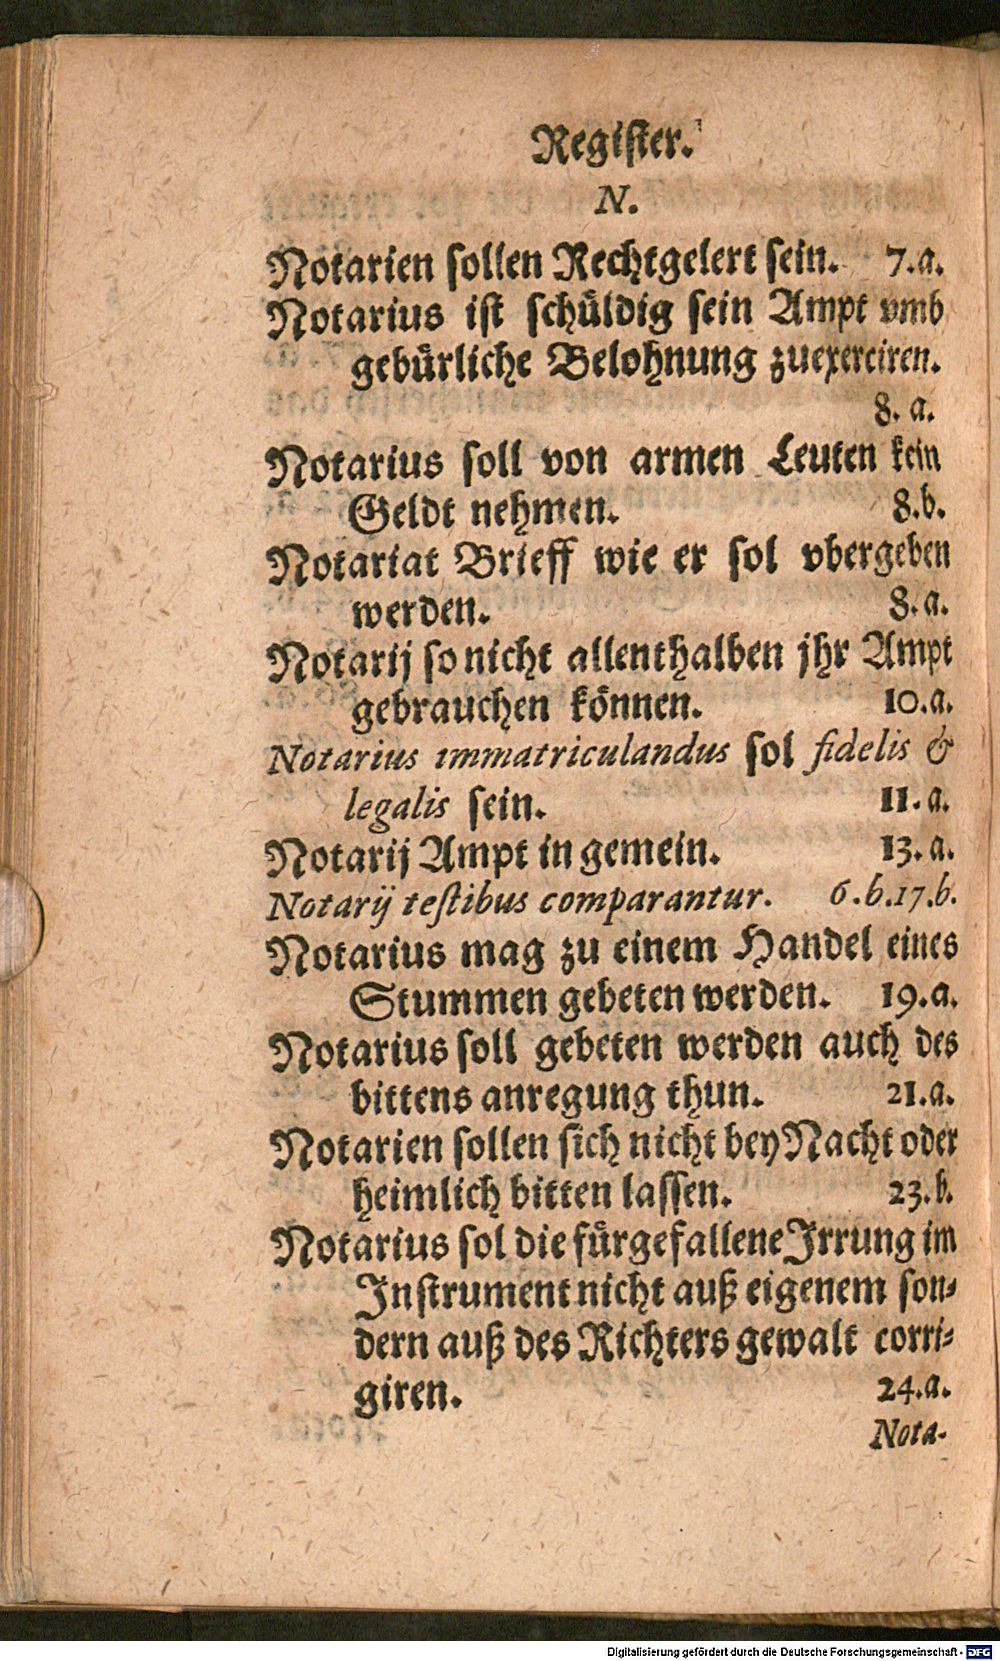 Register.
N.
Notarien sollen Rechtgelert sein. 7.a.
Notarius ist schüldig sein Ampt vmb
gebürliche Belohnung zuexerciren.
8. a.
Notarius soll von armen Leuten kein
Geldt nehmen. 8.b.
Notariat Brieff wie er sol vbergeben
werden. 8.a.
Notarij so nicht allenthalben jhr Ampt
gebrauchen können. 10.a.
Notarius immatriculandus sol fidelis &
legalis sein. 11.a.
Notarij Ampt in gemein. 13.a.
Notarij testibus comparantur. 6.b.17.b.
Notarius mag zu einem Handel eines
Stummen gebeten werden. 19.a.
Notarius soll gebeten werden auch des
bittens anregung thun. 21.a.
Notarien sollen sich nicht bey Nacht oder
heimlich bitten lassen. 23.b.
Notarius sol die fürgefallene Irrung im
Instrument nicht auß eigenem son⸗
dern auß des Richters gewalt corri⸗
giren. 24.a.
Nota-
Digitalisierung gefördert durch die Deutsche Forschungsgemeinschaft - DFG